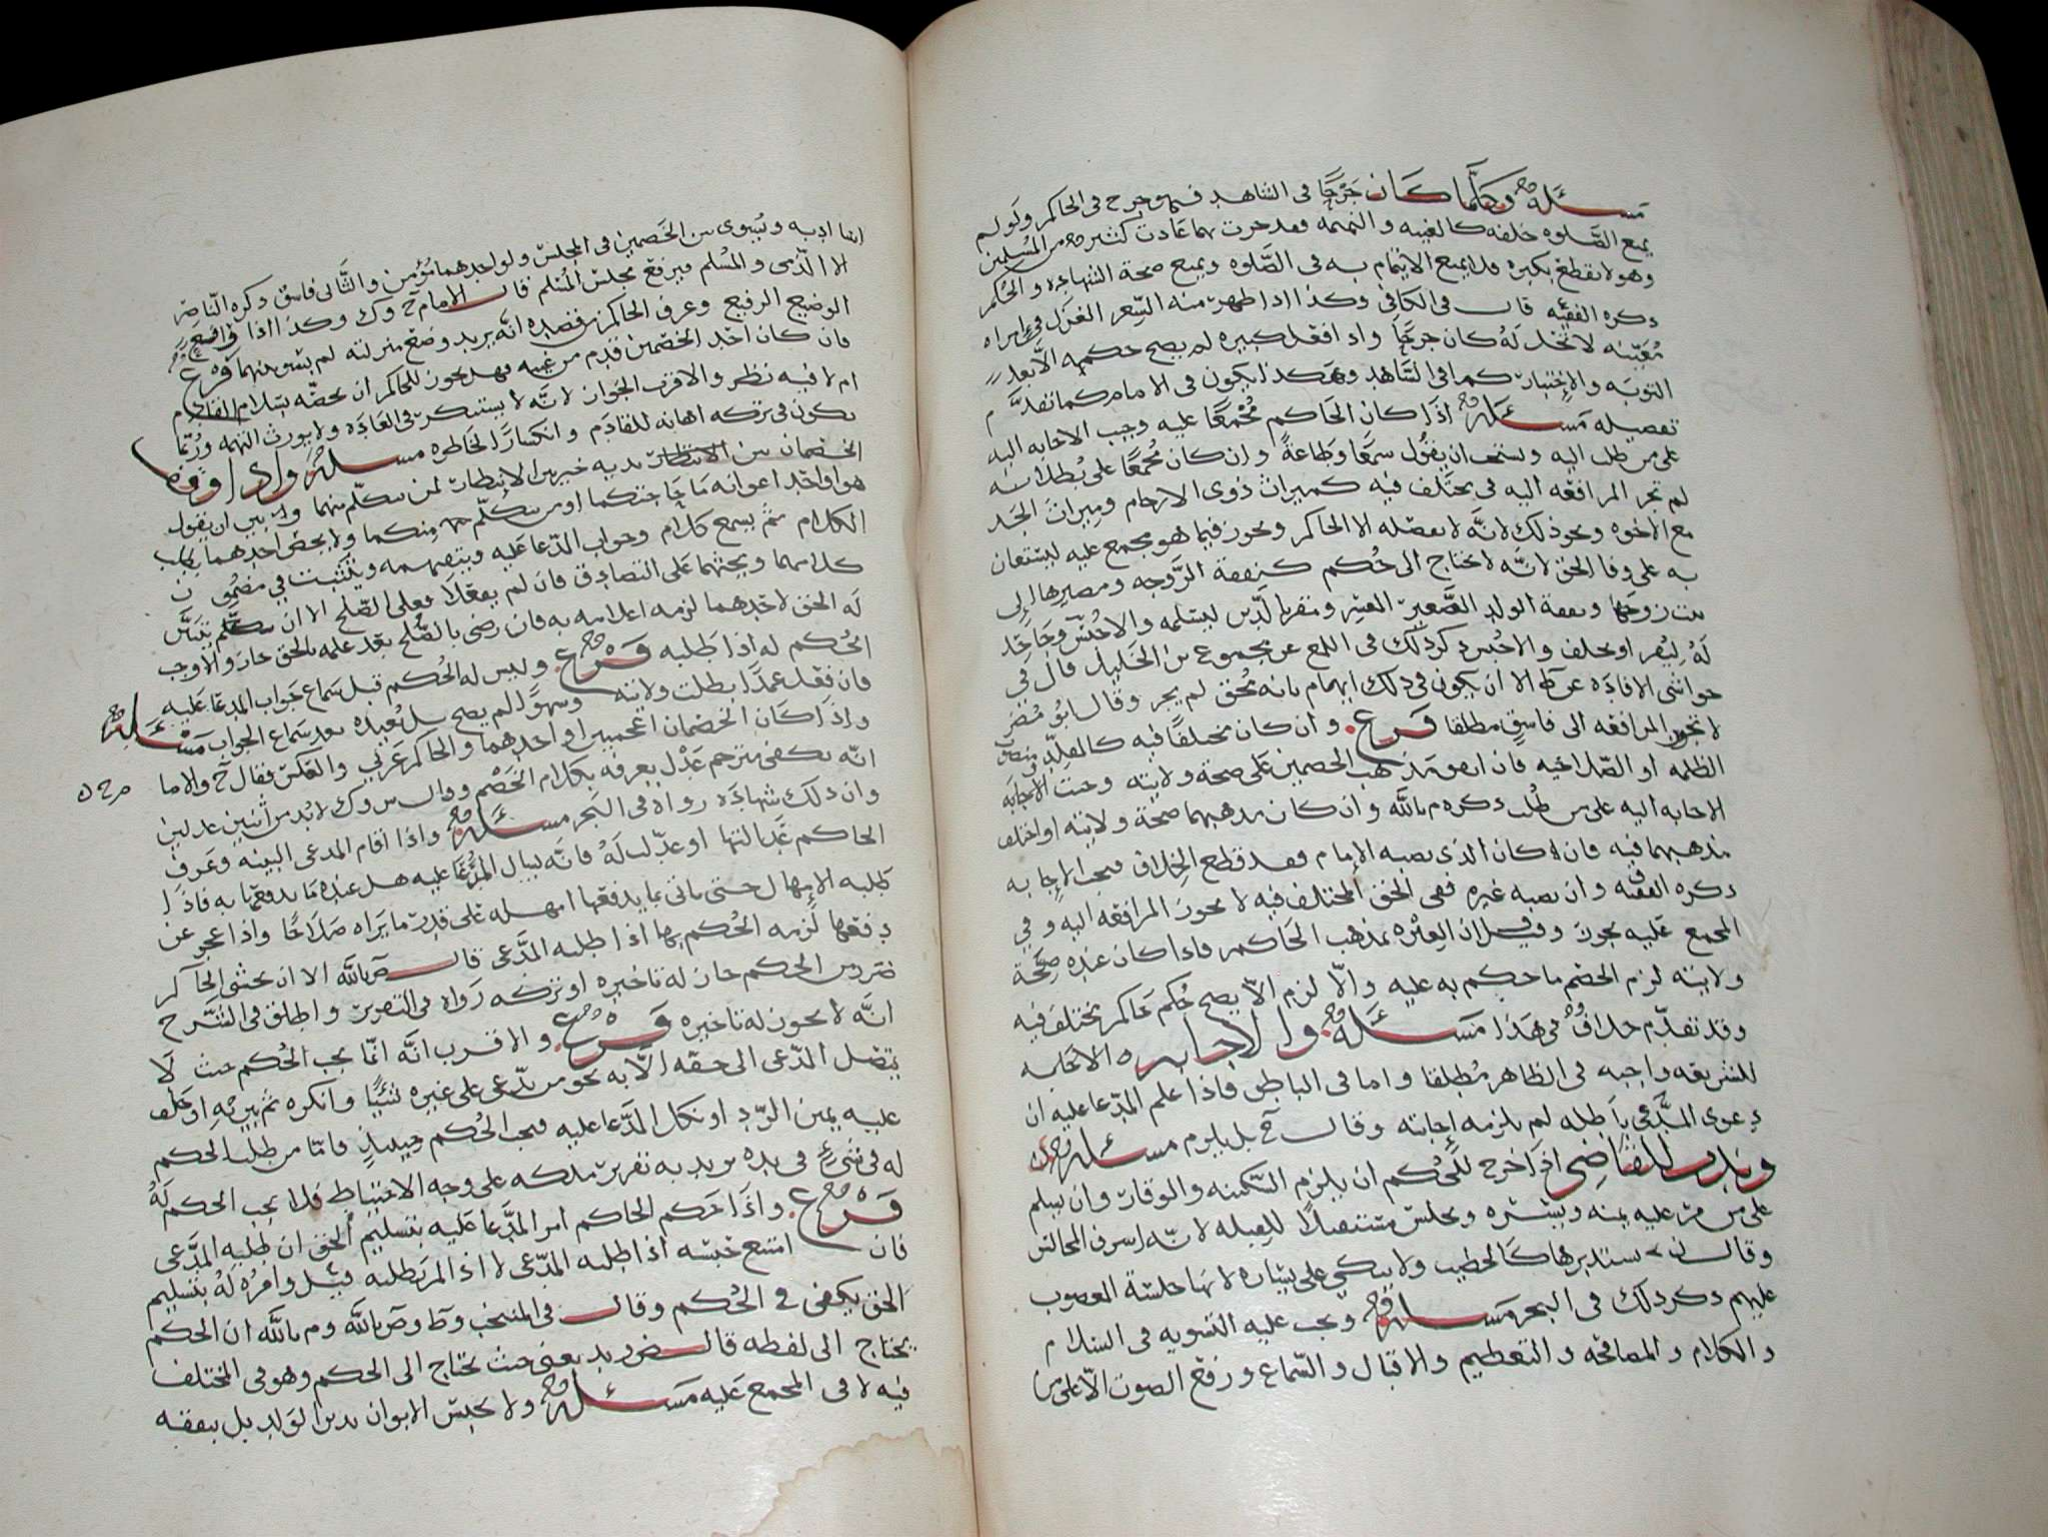 مسئلة وكلما كان جرحًا في الشاهد فهو جرح في الحاكم ولو لم
يمنع الصلوه خلفه كالغيبه والنميمه فقد جرت بهما عادت كثير من المسلمين
وهو لا يقطع بكبره فلا يمنع الايتمام به في الصلوه ويمنع صحة الشهاده والحكم
ذكره الفقيه قال في الكافي وكذا اذا ظهر منه الشعر الغزل في امراه
معينه لا تحل له كان جرحًا واذا فعل كبيره لم يصح حكمه الا بعد
التوبه والاختبار كما في الشاهد وهكذا يكون في الامام كما تقدم
تفصيله مسئلة اذا كان الحاكم مجمعًا عليه وجب الاجابه اليه
على من طلب اليه ويستحب ان يقول سمعًا وطاعةً وان كان مجمعًا على بطلانه
لم تجز المرافعه اليه في مختلف فيه كميراث ذوي الارحام وميراث الجد
مع الاخوه ونحو ذلك لانه لا يفصله الا الحاكم ويجوز فيما هو مجمع عليه ليستعان
به على وفا الحق لانه لا يحتاج الى حكم كنفقة الزوجه ومصيرها الى
بيت زوجها ونفقة الولد الصغير المعسر ومقر بالدين ليسلمه والا حبس وجاحد
له ليقر او يحلف والا حبس ذكر ذلك في اللمع عن مجموع بن الخليل قال في
حواشي الافاده عن ط الا ان يكون في ذلك ايهام بانه محق لم يجز وقال ابو مضر
لا تجوز المرافعه الى فاسق مطلقا فرع وان كان مختلفًا فيه كالمقلد ومنصوب
الظلمه او الصلاحيه فان كان مذهب الخصمين على صحة ولايته وجبت الاجابه
الاجابه اليه على من طلب ذكره م بالله وان كان مذهبهما صحة ولايته او اختلف
مذهبهما فيه فان كان الذي نصبه الامام فقد قطع الخلاف فتجب الاجابه
ذكره الفقيه وان نصبه غيره ففي الحق المختلف فيه لا يجوز المرافعه اليه وفي
المجمع عليه يجوز وقيل ان العبره بمذهب الحاكم فاذا كان عنده صحة
ولايته لزم الخصم ما حكم به عليه والا لزم الا يصح حكم حاكم مختلف فيه
وقد تقدم خلاف في هذا مسئلة والاجابه الا
للشريعه واجبه في الظاهر مطلقا واما في الباطن فاذا علم المدعا عليه ان
دعوى المدعي باطله لم يلزمه اجابته وقال ح بل يلزم مسئلة
وندب للقاضي اذا خرج للحكم ان يلزم السكينه والوقار وان يسلم
على من مر عليه يمنه ويسره ويجلس مستقبلًا للقبله لانه اشرف المجالس
وقال يستدبرها كالخطيب ولا يتكي على يساره لانها جلسة المغضوب
عليهم ذكر ذلك في البحر مسئلة ويجب عليه التسويه في السلام
والكلام والمصافحه والتعظيم والاقبال والسماع ورفع الصوت الا على من
اسا ادبه ويسوى بين الخصمين في المجلس ولو احدهما مؤمن والثاني فاسق ذكره الناصر
الا الذمي والمسلم فيرفع مجلس المسلم قال الامام ح وك وكذا اذا رافع
الوضيع الرفيع وعرف الحاكم من قصده انه يريد وضع منزلته لم يسو بينهما فرع
فان كان احد الخصمين قدم من غيبه فهل يجوز للحاكم ان يخصه بسلام القادم
ام لا فيه نظر والاقرب الجواز لانه لا يستنكر في العاده ولا يورث التهمه وربما
يكون في تركه اهانه للقادم وانكسارًا لخاطره مسئلة واذا وقف
الخصمان بين يديه خير بين الانتظار لمن يتكلم منهما وبين ان يقول
هو او احد اعوانه ما حاجتكما او من يتكلم منكما ولا يخص احدهما
الكلام ثم يسمع كلام وجواب المدعا عليه ويتفهمه ويتثبت في مضمون
كلامهما ويحثهما على التصادق فان لم يفعلا فعلى الصلح الا ان يتبين
له الحق لاحدهما لزمه اعلامه به فان رضي بالصلح بعد علمه بالحق جاز والا وجب
الحكم له اذا طلبه فرع وليس له الحكم قبل سماع جواب المدعا عليه
فان فعل عمدًا بطلت ولايته وسهوًا لم يصح بل يعيده بعد سماع الجواب مسئلة
واذا كان الخصمان اعجميين او احدهما والحاكم عربي والعكس فقال ح والاما
انه يكفي مترجم عدل يعرفه بكلام الخصم وقال س وك لا بد من اثنين عدلين
وان ذلك شهاده رواه في البحر مسئلة واذا اقام المدعي البينه وعرف
الحاكم عدالتها او عدلت له فانه يسال المدعا عليه هل عنده ما يدفعها به فاذا
طلبه الامهال حتى ياتي بما يدفعها امهله على قدر ما يراه صلاحًا واذا عجز عن
دفعها لزمه الحكم بها اذا طلبه المدعي قال ص بالله الا ان يخشى الحاكم
ضرر من الحكم جاز له تاخيره او تركه رواه في التقرير واطلق في الشرح
انه لا يجوز له تاخيره فرع والاقرب انه انما يجب الحكم حيث لا
يتصل المدعي الى حقه الا به نحو من يدعي على غيره شيئًا وانكره ثم يبين به او حلف
عليه يمين الرد او نكل المدعا عليه فيجب الحكم حينئذٍ فاما من طلب الحكم
له في شيءٍ في يده يريد به تقرير ملكه على وجه الاحتياط فلا يجب الحكم له
فرع واذا حكم الحاكم امر المدعا عليه بتسليم الحق ان طلبه المدعي
فان امتنع حبسه اذا طلبه المدعي لا اذا لم يطلبه قيل وامره له بتسليم
الحق يكفي في الحكم وقال في المنتخب وط وص بالله وم بالله ان الحكم
يحتاج الى لفظه قال ض زيد يعني حيث يحتاج الى الحكم وهو في المختلف
فيه لا في المجمع عليه مسئلة ولا يحبس الابوان بدين الولد بل بنفقه